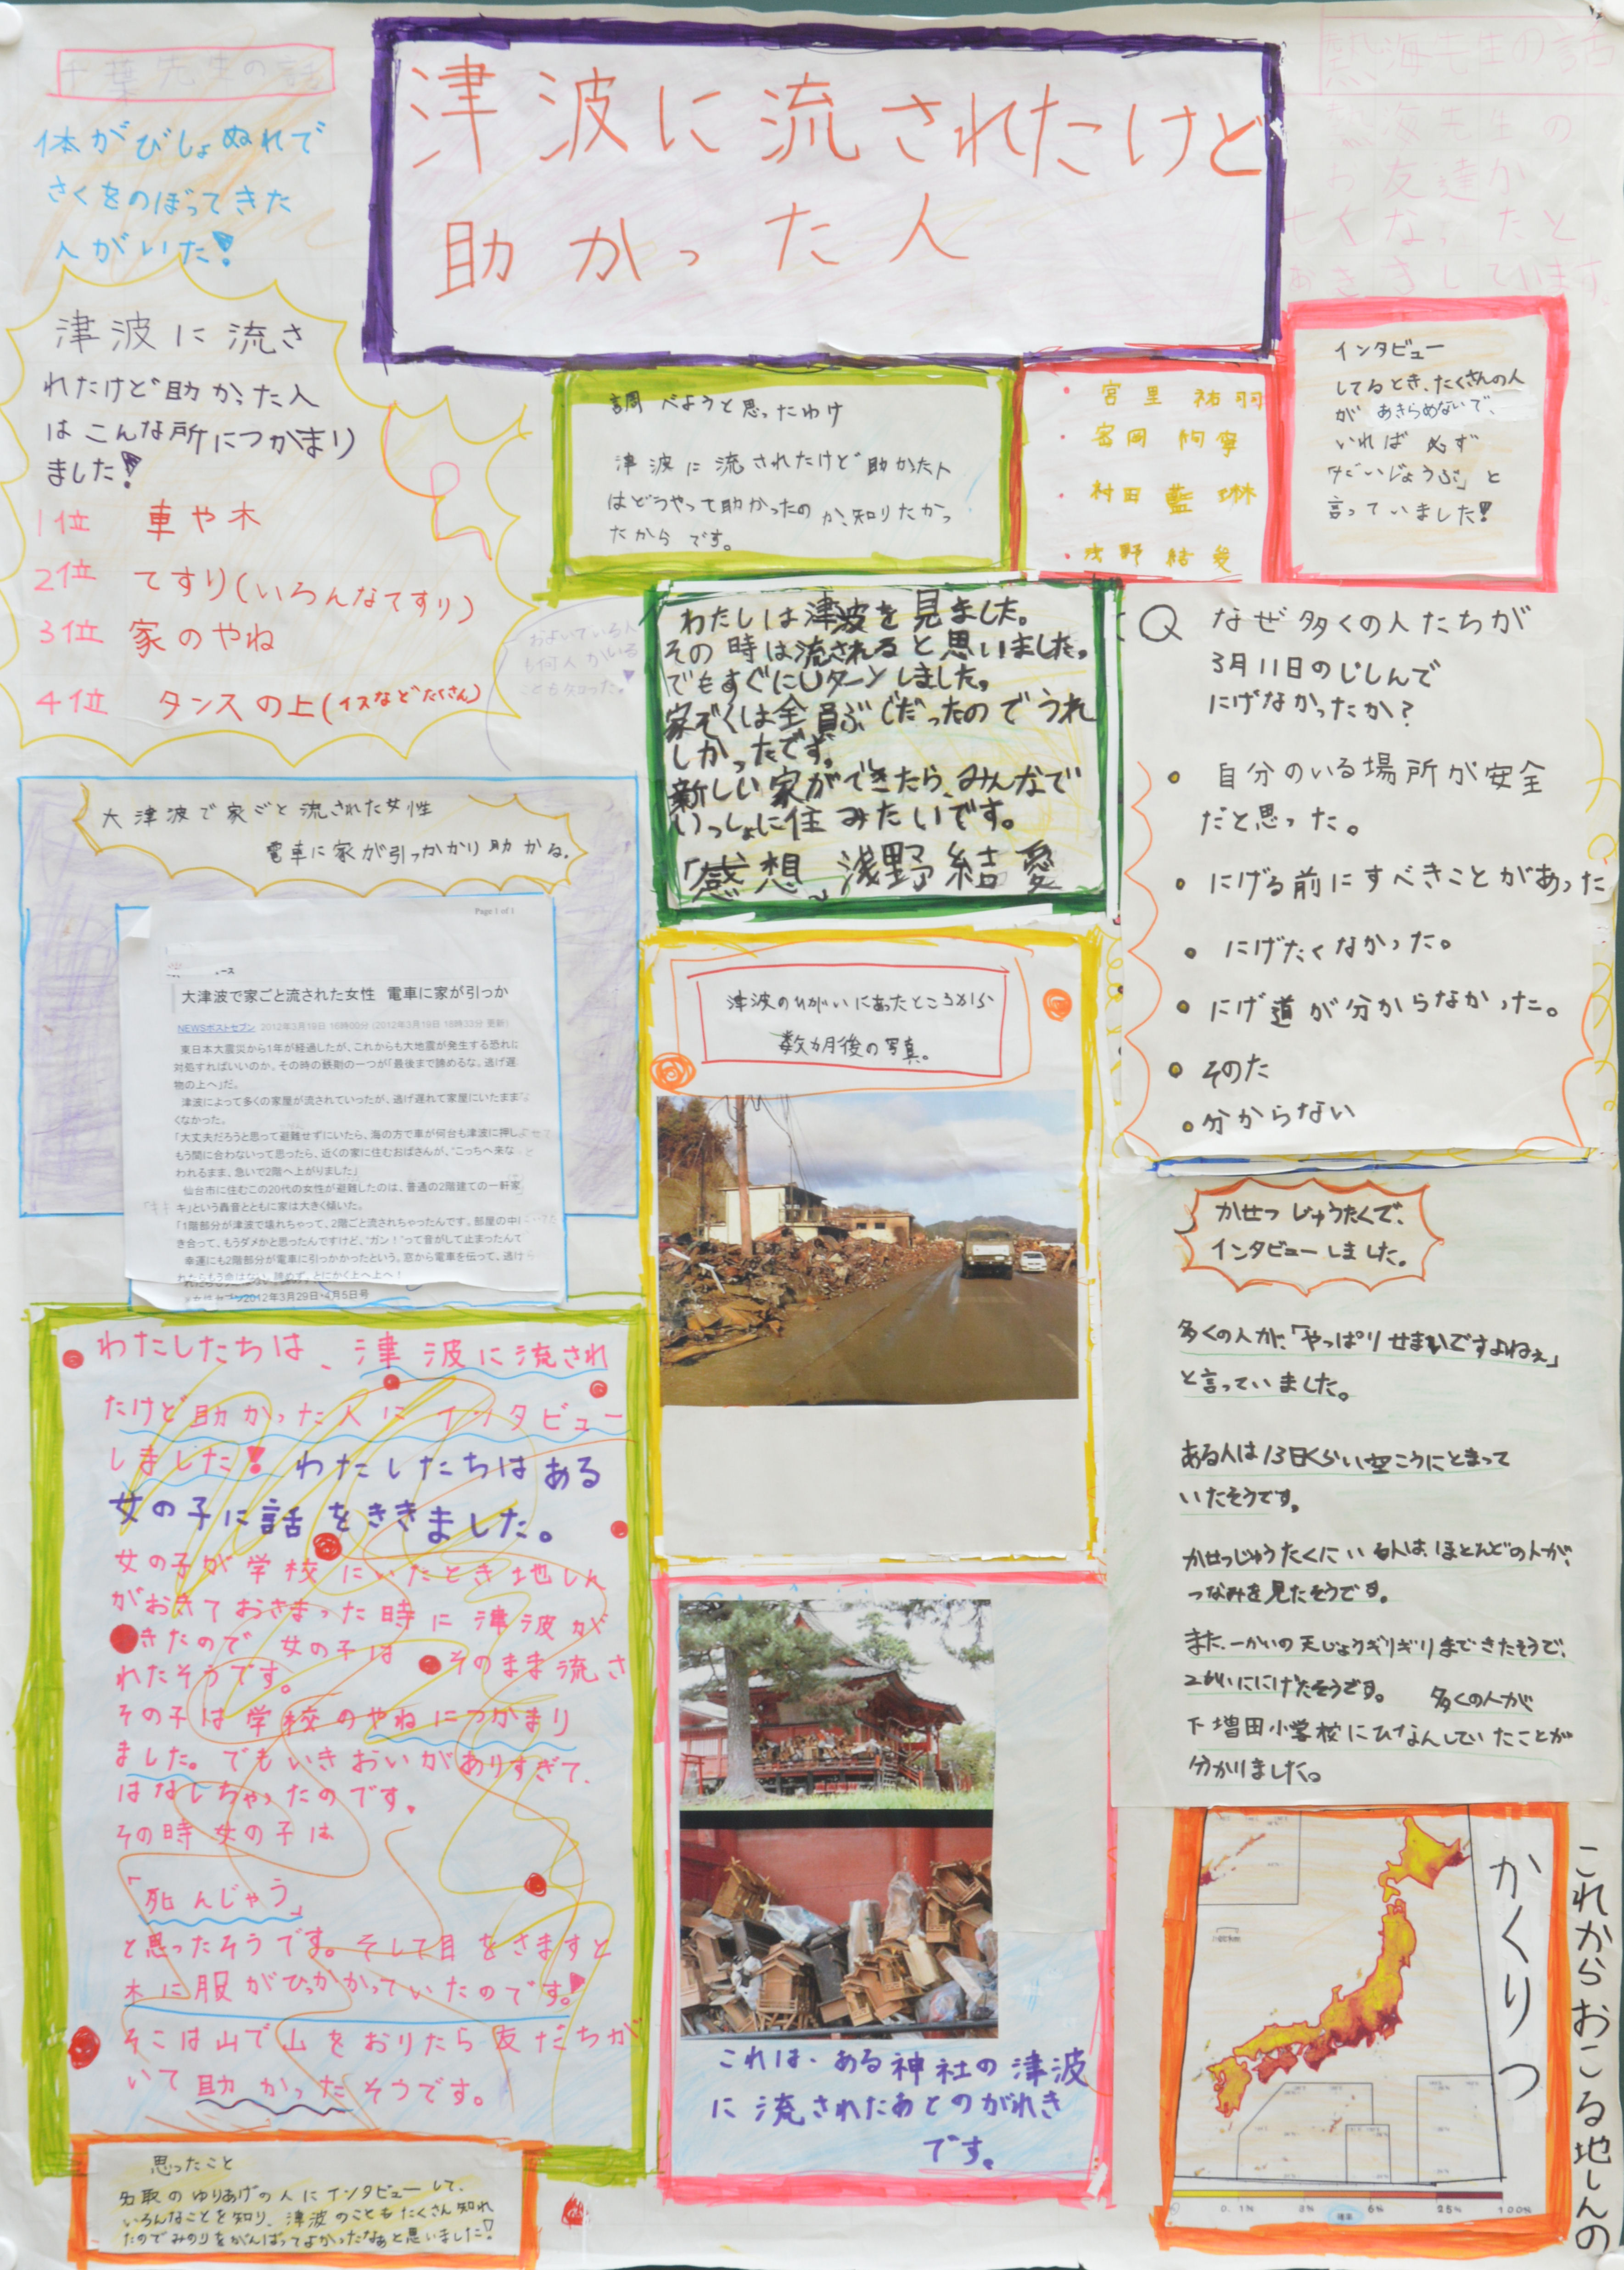 千葉先生の話
体がびしょぬれで
さくをのぼってきた
人がいた!
津波に流されたけど
助かった人
熱海先生の話
熱海先生の
お友達が
亡くなったと
おききしています。
津波に流さ
れたけど助かった人
はこんな所につかまり
ました!
1位 車や木
2位 てすり(いろんなてすり)
3位 家のやね
4位 タンスの上(イスなどたくさん)
およいでいる人
も何人かいる
ことも知った。
調べようと思ったわけ
津波に流されたけど助かた人
はどうやって助かったのか、知りたかっ
たからです。
・宮里祐羽
・村田藍琳
・浅野結愛
インタビュー
してるとき、たくさんの人
が あきらめないで、
いれば 必ず
だいじょうぶ」と
言っていました!
わたしは津波を見ました。
その時は流されると思いました。
でもすぐにUターンしました。
家ぞくは全員ぶじだったのでうれ
しかったです。
新しい家ができたら、みんなで
いっしょに住みたいです。
「感想」浅野結愛
Q なぜ多くの人たちが
3月11日のじしんで
にげなかったか?
・自分のいる場所が安全
だと思った。
・にげる前にすべきことがあった
・にげたくなかった。
・にげ道が分からなかった。
・そのた
・分からない
大津波で家ごと流された女性
電車に家が引っかかり助かる。
Page 1 of 1
ース
大津波で家ごと流された女性 電車に家が引っか
NEWSポストセブン 2012年3月19日 16時00分 (2012年3月19日 16時33分 更新)
東日本大震災から1年が経過したが、これからも大地震が発生する恐れに
対処すればいいのか。その時の鉄則の一つが「最後まで諦めるな。逃げ遅
物の上へ」だ。
津波によって多くの家屋が流されていったが、逃げ遅れて家屋にいたまま
くなかった。
「大丈夫だろうと思って避難せずにいたら、海の方で車が何台も津波に押し
もう間に合わないって思ったら、近くの家に住むおばさんが、“こっちへ来な
われるまま、急いで2階へ上がりました」
仙台市に住むこの20代の女性が避難したのは、普通の2階建ての一軒家
キ」という轟音とともに家は大きく傾いた。
「1階部分が津波で壊れちゃって、2階ごと流されちゃったんです。部屋の中
き合って、もうダメかと思ったんですけど、“ガン!”って音がして止まったんて
幸運にも2階部分が電車に引っかかったという。窓から電車を伝って、逃げ
れたらもう命はない。諦めず、とにかく上へ上へ!
※女性セブン2012年3月29日・4月5日号
津波のひがいにあったところから
数カ月後の写真。
かせつじゅうたくで、
インタビューしました。
多くの人が、「やっぱりせまいですよねぇ」
と言っていました。
ある人は13日くらい空こうにとまって
いたそうです。
かせつじゅうたくにいる人は、ほとんどの人が、
つなみを見たそうです。
また、一かいの天じょうギリギリまできたそうで、
2かいににげたそうです。 多くの人が
下増田小学校にひなんしていたことが
分かりました。
わたしたちは、津波に流され
たけど助かった人にインタビュー
しました! わたしたちはある
女の子に話をききました。
女の子が学校にいたとき地しん
がおきておさまった時に津波が
きたので女の子はそのまま流さ
れたそうです。
その子は学校のやねにつかまり
ました。でもいきおいがありすぎて、
はなしちゃったのです。
その時女の子は
「死んじゃう」
と思ったそうです。そして目をさますと
木に服がひっかかっていたのです!
そこは山で山をおりたら友だちが
いて助かったそうです。
これは、ある神社の津波
に流されたあとのがれき
です。
思ったこと
名取のゆりあげの人にインタビューして、
いろんなことを知り、津波のこともたくさん知れ
たのでみのりをがんばってよかったなぁと思いました!
これからおこる地しんの
かくりつ
0.1% 3% 6% 25% 100%
確率